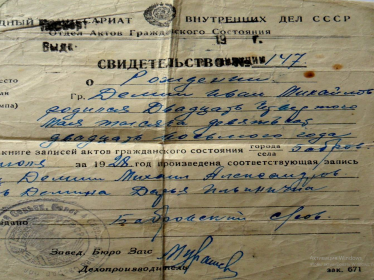 ДНЫЙ КОМИССАРИАТ ВНУТРЕННИХ ДЕЛ СССР
Отдел Актов Гражданского Состояния
Выд. 19 г.
СВИДЕТЕЛЬСТВО 147
О Рождении
Гр. Демин Иван Михайлов
родился Двадцать Четвертого
Мая тысяча девятьсот
двадцать
книге записей актов гражданского состояния города села Бобров
июля за 19 произведена соответствующая запись
Демин Михаил Александров
Демина Дарья Ильинична
Бобровский
Завед. Бюро Загс
Делопроизводитель
зак. 671